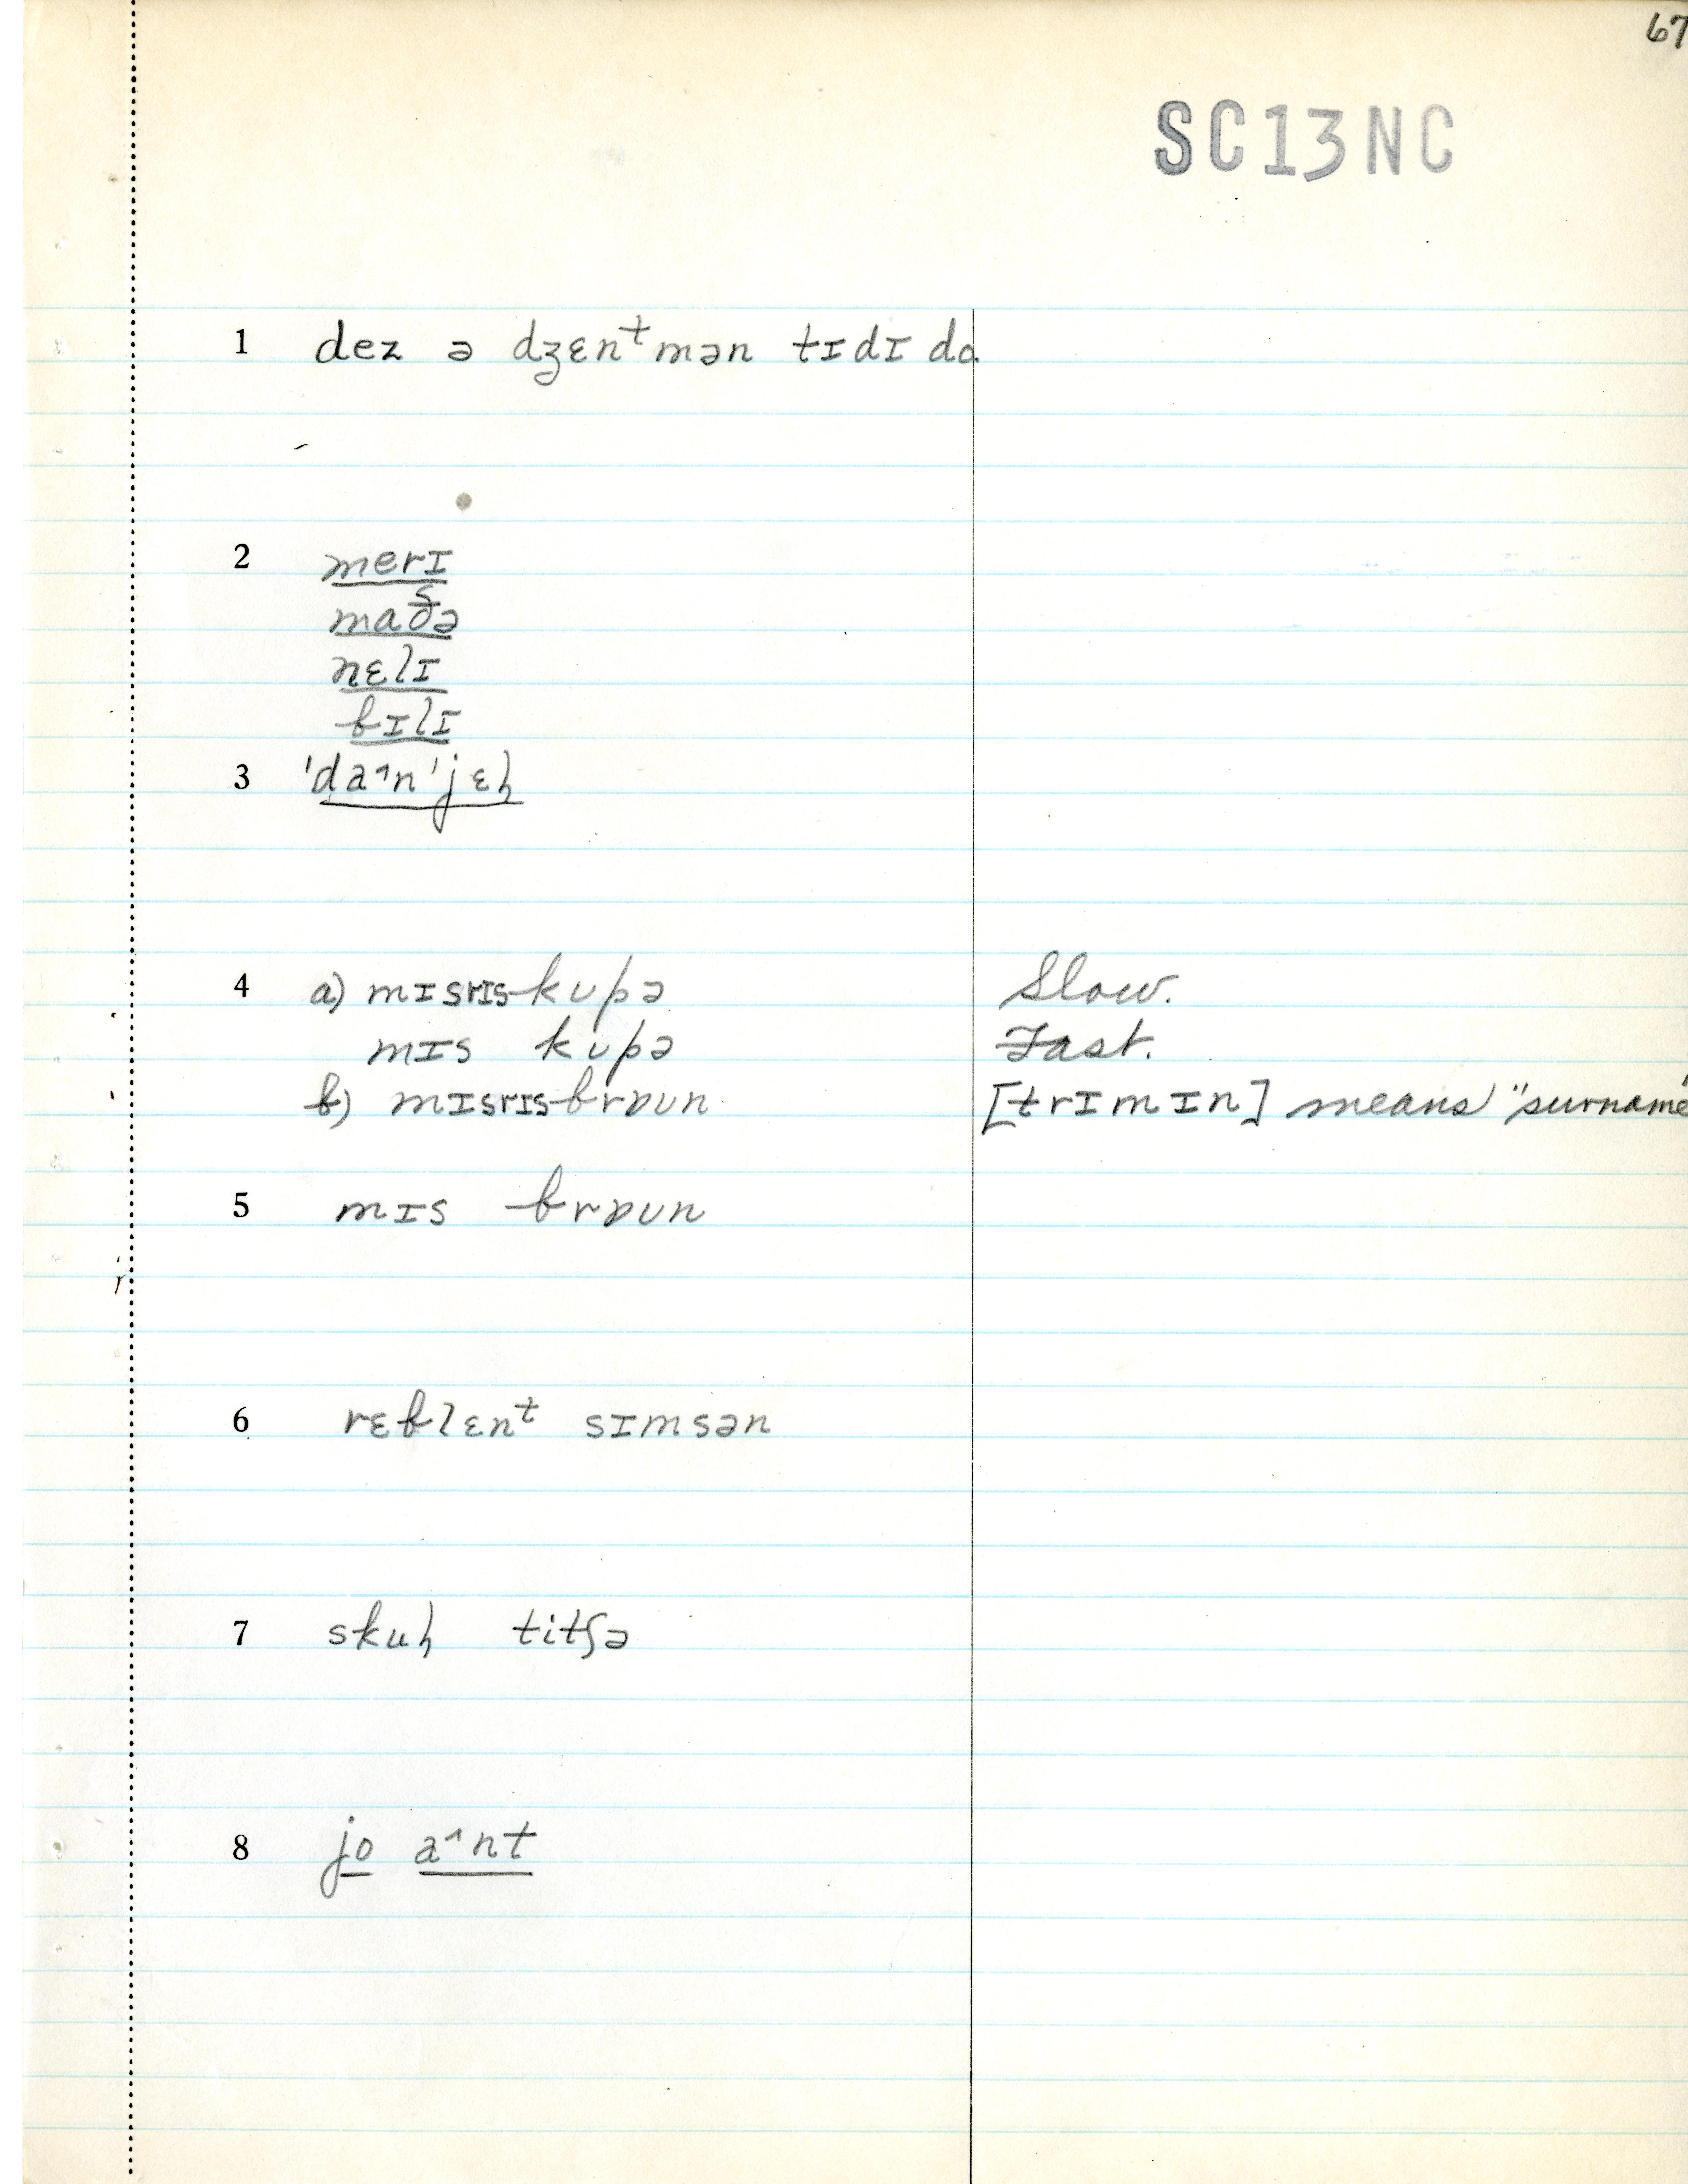 67
SC13NC
1 dez ə dʒɛnᵗmən tɪdɪ do
2 merɪ
maðə
nɛlɪ
bɪlɪ
3 'da˄n'jɛl̩
4 a) mɪsrɪs kupə Slow.
mɪs kupə Fast.
b) mɪsrɪs brɒun [trɪmɪn] means "surname"
5 mɪs brɒun
6 rɛblɛnᵗ sɪmsən
7 skul̩ titʃə
8 jo a˄nt